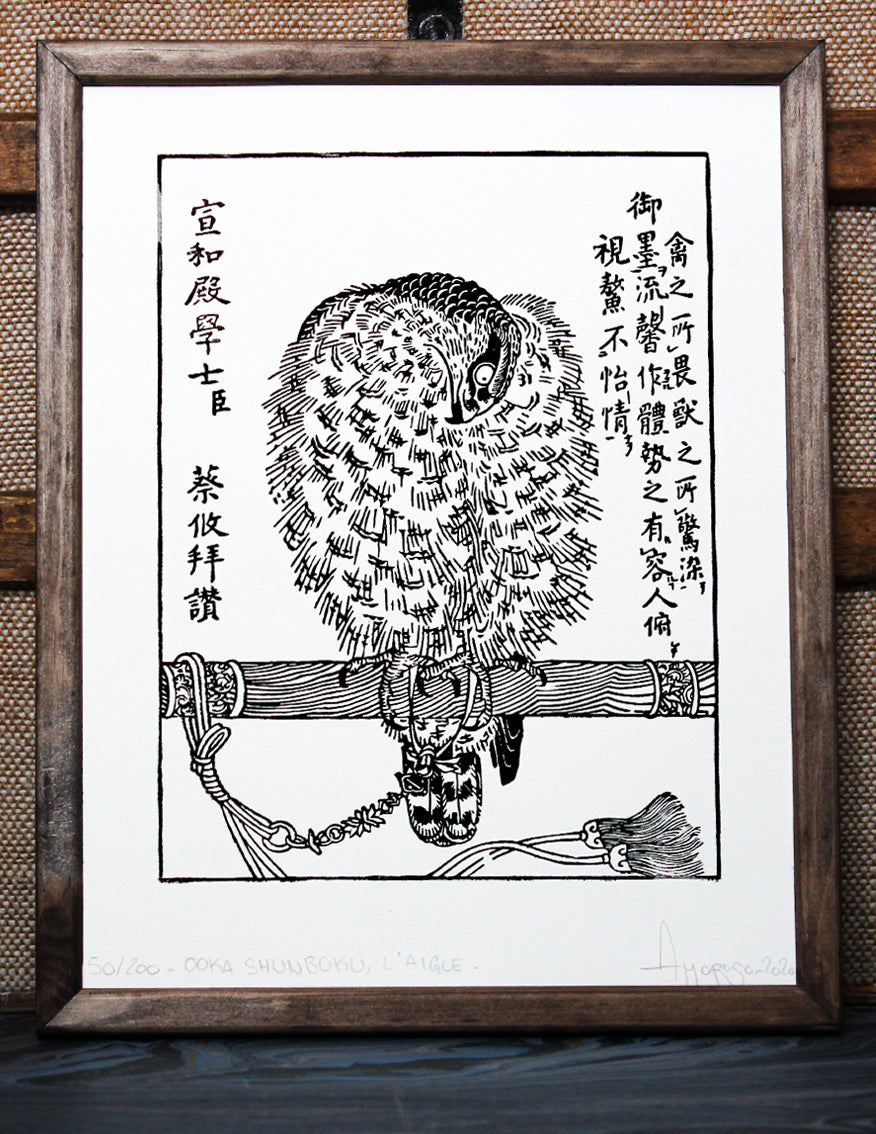 禽之所畏獸之所驚染
御墨流馨作體勢之有容人俯
視鰲不怡情
宣和殿學士臣 蔡攸拜讚
50/200 - OOKA SHUNBOKU, L'AIGLE -
2020